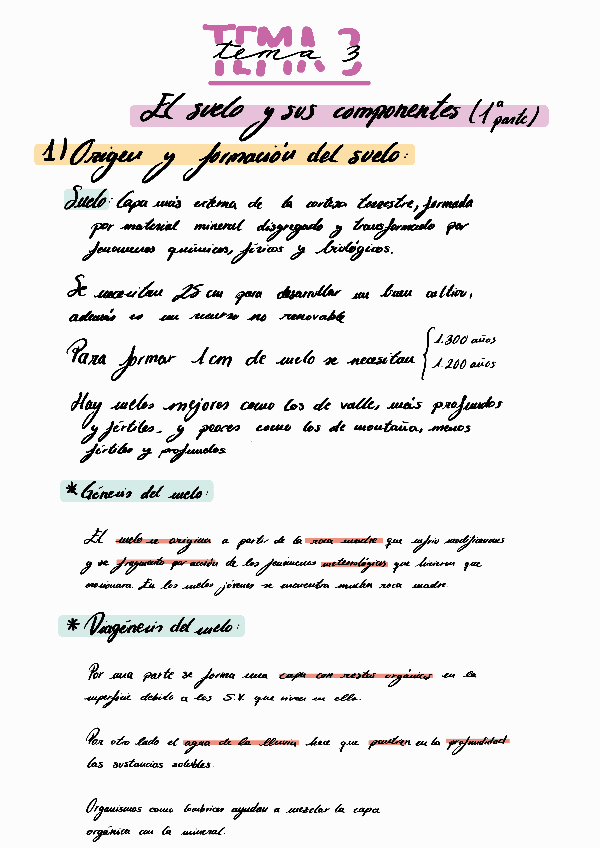 TEMA 3
tema 3
El suelo y sus componentes (1ª parte)
1) Origen y formación del suelo:
Suelo: Capa más externa de la corteza terrestre, formada
por material mineral disgregado y transformado por
fenómenos químicos, físicos y biológicos.
Se necesitan 25 cm para desarrollar un buen cultivo,
además es un recurso no renovable
Para formar 1 cm de suelo se necesitan
1.300 años
1.200 años
Hay suelos mejores como los de valle, más profundos
y fértiles, y peores como los de montaña, menos
fértiles y profundos
* Génesis del suelo:
El suelo se origina a partir de la roca madre que sufrio modificaciones
y se fragmento por acción de los fenómenos meterológicos que hicieron que
. En los suelos jóvenes se encuentra mucha roca madre
* Diagénesis del suelo:
Por una parte se forma una capa con restos orgánicos en la
superficie debido a los S.V. que viven en ella.
Por otro lado el agua de la lluvia hace que penetren en la profundidad
las sustancias solubles.
Organismos como lombrices ayudan a mezclar la capa
orgánica con la mineral.